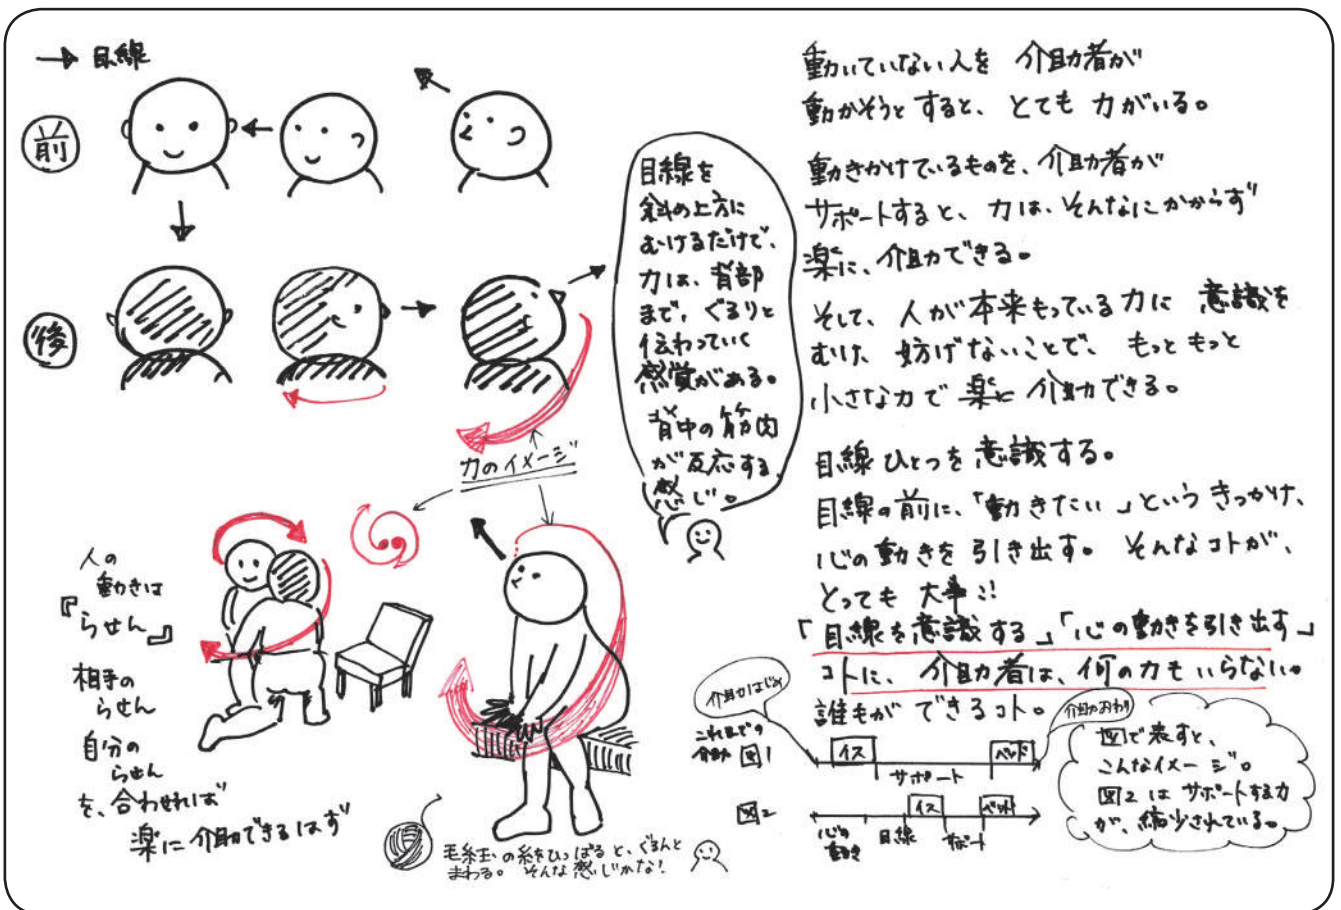 目線
前
後
目線を
斜め上方に
むけるだけで、
力は、背部
まで、ぐるりと
伝わっていく
感覚がある。
背中の筋肉
が反応する
感じ。
力のイメージ
人の
動きは
『らせん』
相手の
らせん
自分の
らせん
を、合わせれば
楽に介助できるはず
毛糸玉の糸をひっぱると、ぐるんと
まわる。そんな感じかな!
動いていない人を 介助者が
動かそうとすると、とても 力がいる。
動きかけているものを、介助者が
サポートすると、力は、そんなにかからず
楽に、介助できる。
そして、人が本来もっている力に 意識を
むけ、妨げないことで、もっともっと
小さな力で 楽に 介助できる。
目線ひとつを意識する。
目線の前に、「動きたい」という きっかけ、
心の動きを引き出す。そんなコトが、
とっても 大事!!
「目線を意識する」「心の動きを引き出す」
コトに、介助者は、何の力も いらない。
誰もが できるコト。
介助はじめ
これまでの
介助 図1
イス
サポート
ベッド
介助おわり
図2
心の
動き
目線
イス
サポート
ベッド
図で表すと、
こんなイメージ。
図2は サポートする力
が、縮少されている。